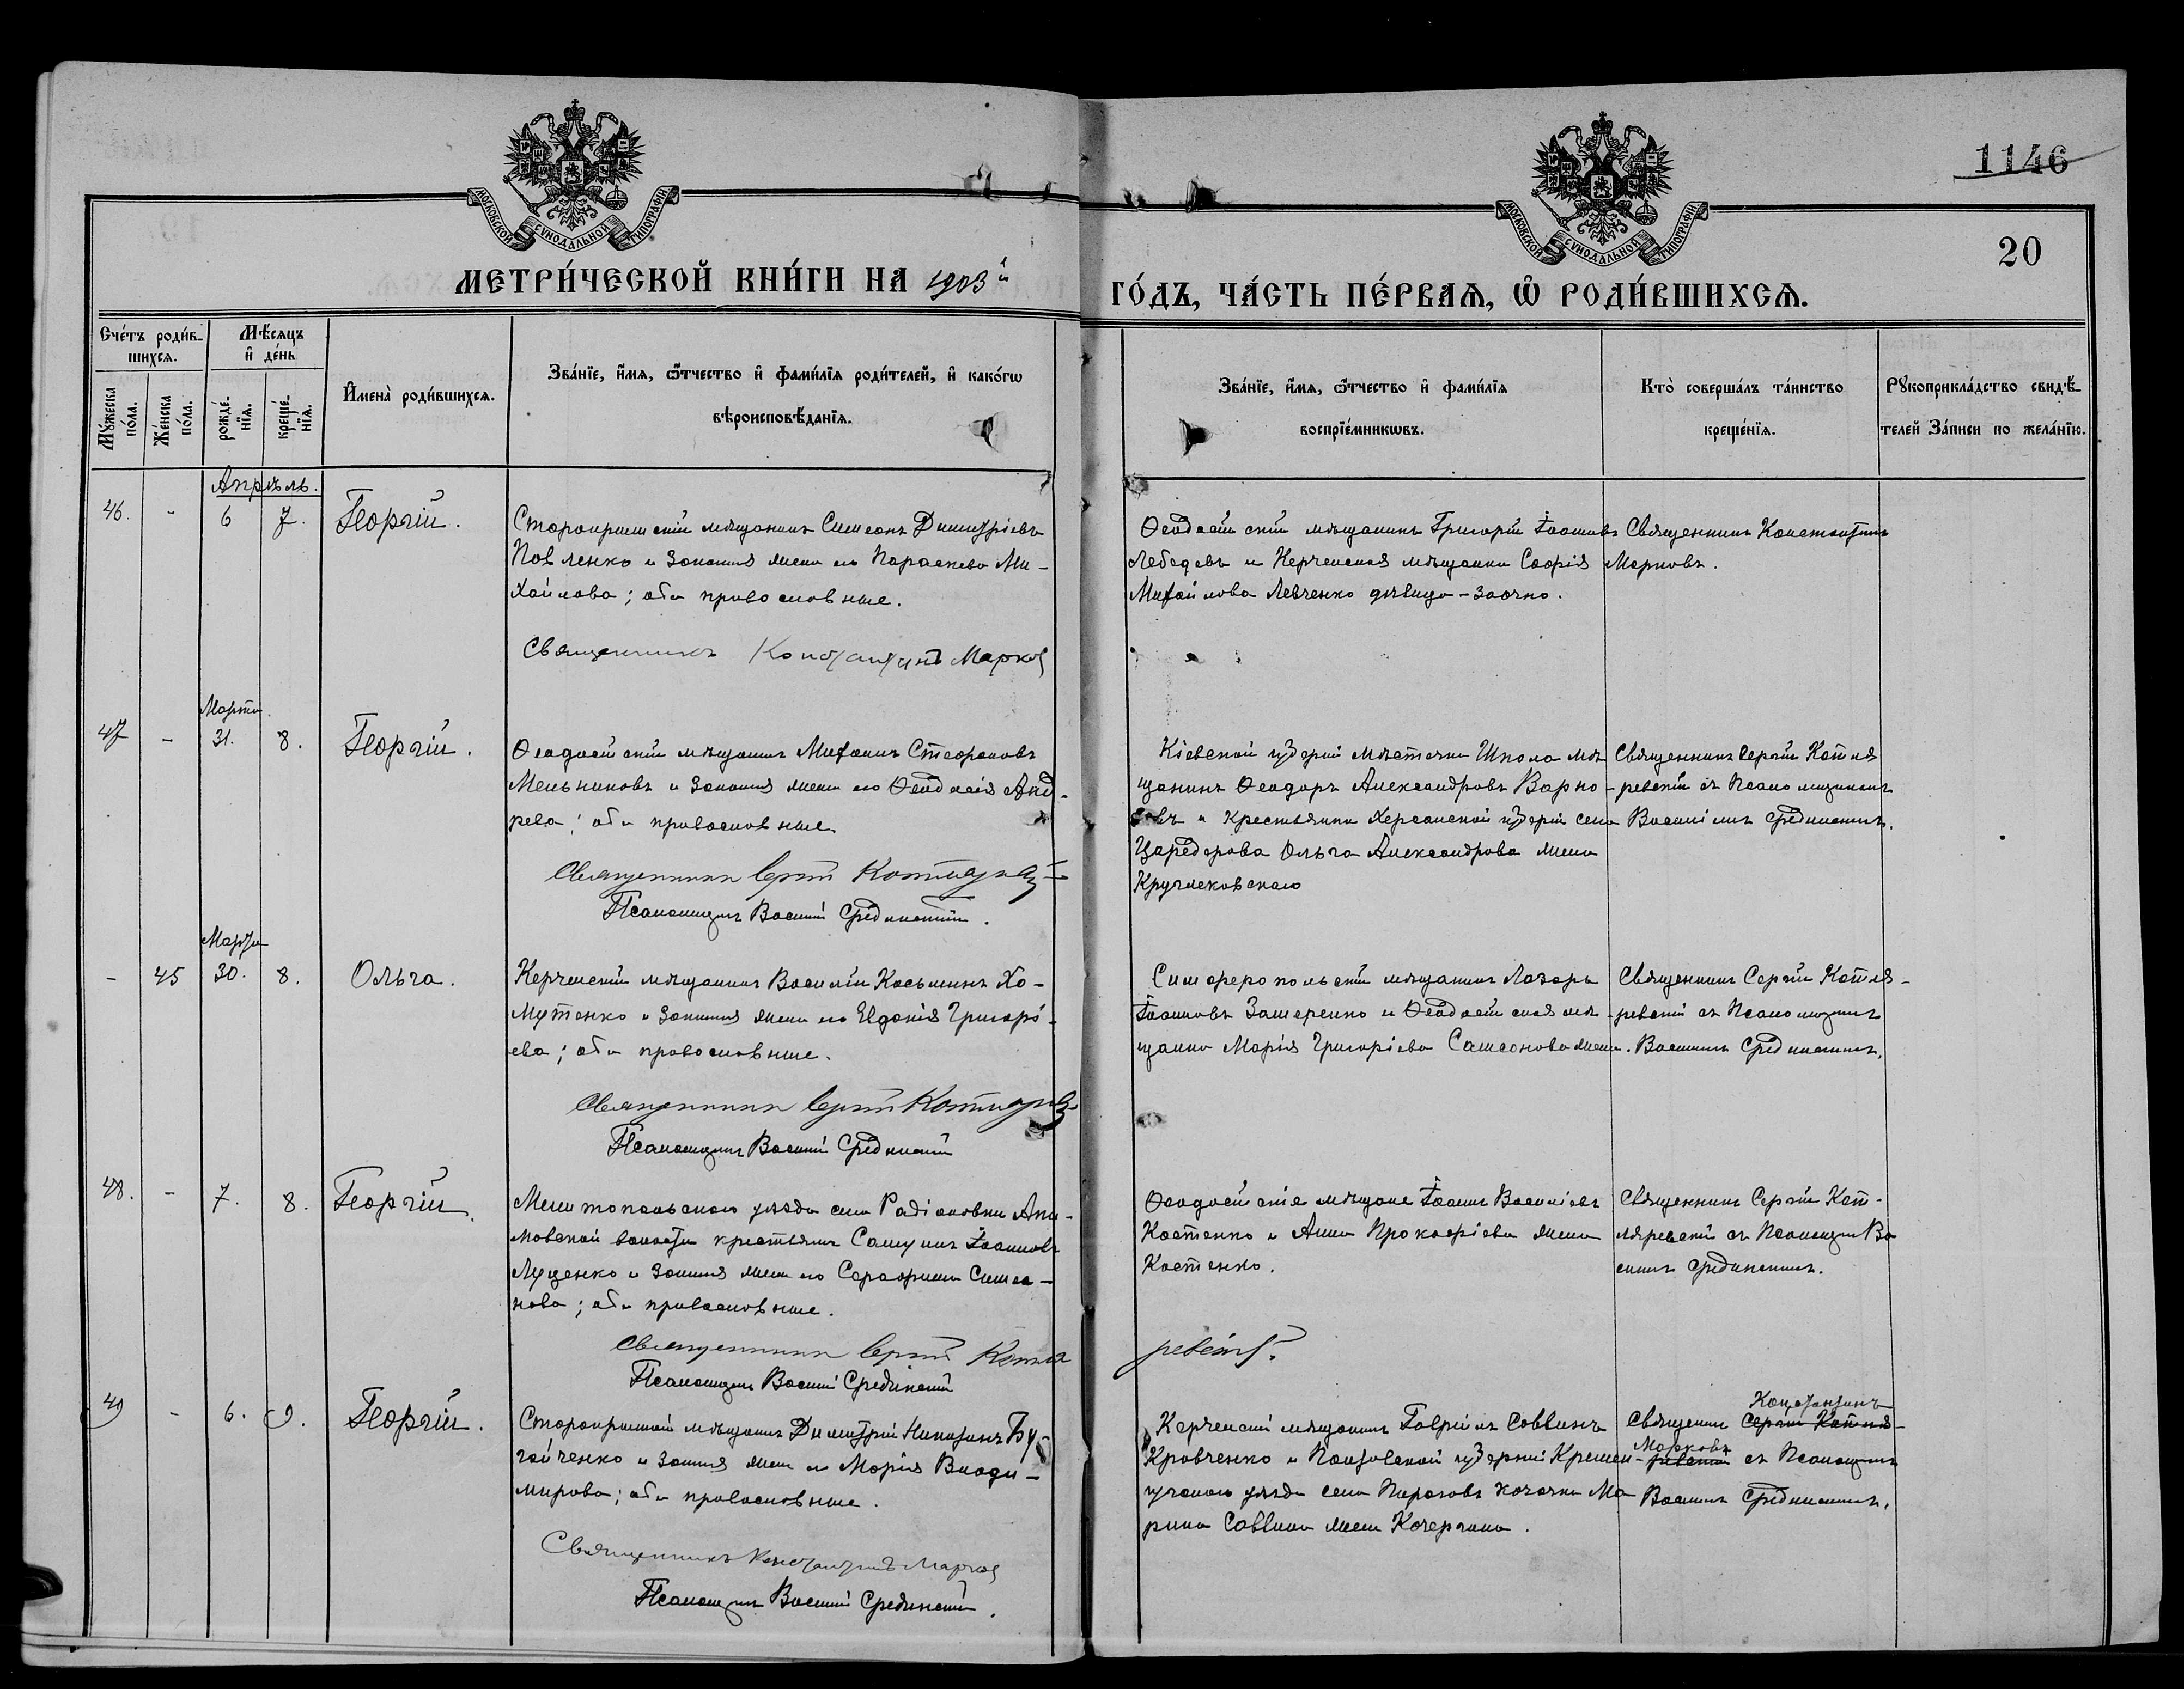 МОСКОВСКОЙ СѴНОДАЛЬНОЙ ТИПОГРАФІИ
МОСКОВСКОЙ СѴНОДАЛЬНОЙ ТИПОГРАФІИ
1146
20
МЕТРИ́ЧЕСКОЙ КНИ́ГИ НА 1903й
ГО́ДЪ, ЧА́СТЬ ПЕ́РВАѦ, Ѡ҆ РОДИ́ВШИХСѦ.
Сче́тъ роди́в-
шихсѧ.
Мѣ́сѧцъ
и҆ де́нь
Мꙋ́жеска
по́ла.
Же́нска
по́ла.
рожде́-
нїѧ.
креще́-
нїѧ.
И҆мена̀ роди́вшихсѧ.
Зва́нїе, и҆́мѧ, ѻ҆́тчество и҆ фами́лїѧ роди́телей, и҆ како́гѡ
вѣроисповѣ́данїѧ.
Зва́нїе, и҆́мѧ, ѻ҆́тчество и҆ фами́лїѧ
воспрїе́мникѡвъ.
Кто̀ соверша́лъ та́инство
креще́нїѧ.
Рꙋкоприкла́дство свидѣ́-
телей За́писи по жела́нїю.
Апрѣль.
46. - 6 7. Георгій.
Старокрымскій мѣщанинъ Симеонъ Димитріевъ
Павленко и законная жена его Параскева Ми-
хайлова; оба православные.
Священникъ Константинъ Марковъ
Ѳеодосійскій мѣщанинъ Григорій Іоанновъ
Лебедевъ и Керченская мѣщанка Софія
Михайлова Левченко дѣвица - заочно.
Священникъ Константинъ
Марковъ.
Марта
47 - 31. 8. Георгій.
Ѳеодосійскій мѣщанинъ Михаилъ Стефановъ
Мельниковъ и законная жена его Ѳеодосія Анд-
реева; оба православные.
Священникъ Сергій Котляревскій
Псаломщикъ Василій Срединскій.
Кіевской губерніи мѣстечка Шпола мѣ
щанинъ Ѳеодоръ Александровъ Варно-
и крестьянка Херсонской губерніи села
Ольга Александрова жена
Священникъ Сергій Котля
ревскій съ Псаломщикомъ
Василіемъ Срединскимъ.
Марта
- 45 30. 8. Ольга.
Керченскій мѣщанинъ Василій Косьминъ Хо-
мутенко и законная жена его Евдокія Григорі-
ева; оба православные.
Священникъ Сергій Котляревскій
Псаломщикъ Василій Срединскій
Симферопольскій мѣщанинъ Лазарь
Іоанновъ Зашеренко и Ѳеодосійская мѣ-
щанка Марія Григоріева Самсонова жена.
Священникъ Сергій Котля-
ревскій съ Псаломщикомъ
Василіемъ Срединскимъ.
48. - 7. 8. Георгій.
Мелитопольскаго уѣзда села Радіоновки Аки-
мовской волости крестьянинъ Самуилъ Іоанновъ
Луценко и законная жена его Серафима Симео-
нова; оба православные.
Священникъ Сергій Котля
ревскій.
Псаломщикъ Василій Срединскій
Ѳеодосійскіе мѣщане Іоаннъ Василіевъ
Костенко и Анна Прокофіева жена
Костенко.
Священникъ Сергій Кот-
ляревскій съ Псаломщикомъ Ва
силіемъ Срединскимъ.
49 - 6. 9. Георгій.
Старокрымскій мѣщанинъ Димитрій Никитинъ Бу-
гайченко и законная жена его Марія Влади-
мирова; оба православные.
Священникъ Константинъ Марковъ
Псаломщикъ Василій Срединскій.
Керченскій мѣщанинъ Гавріилъ Саввинъ
Кравченко и Полтавской губерніи Кремен-
чугскаго уѣзда села Пироговъ казачка Ма
рина Саввина жена Кочергина.
Константинъ
Священникъ Сергій Котля-
Марковъ
ревскій съ Псаломщикомъ
Василіемъ Срединскимъ.